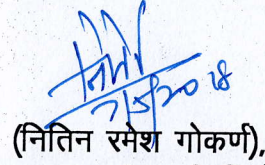 7/5/2018
(नितिन रमेश गोकर्ण),